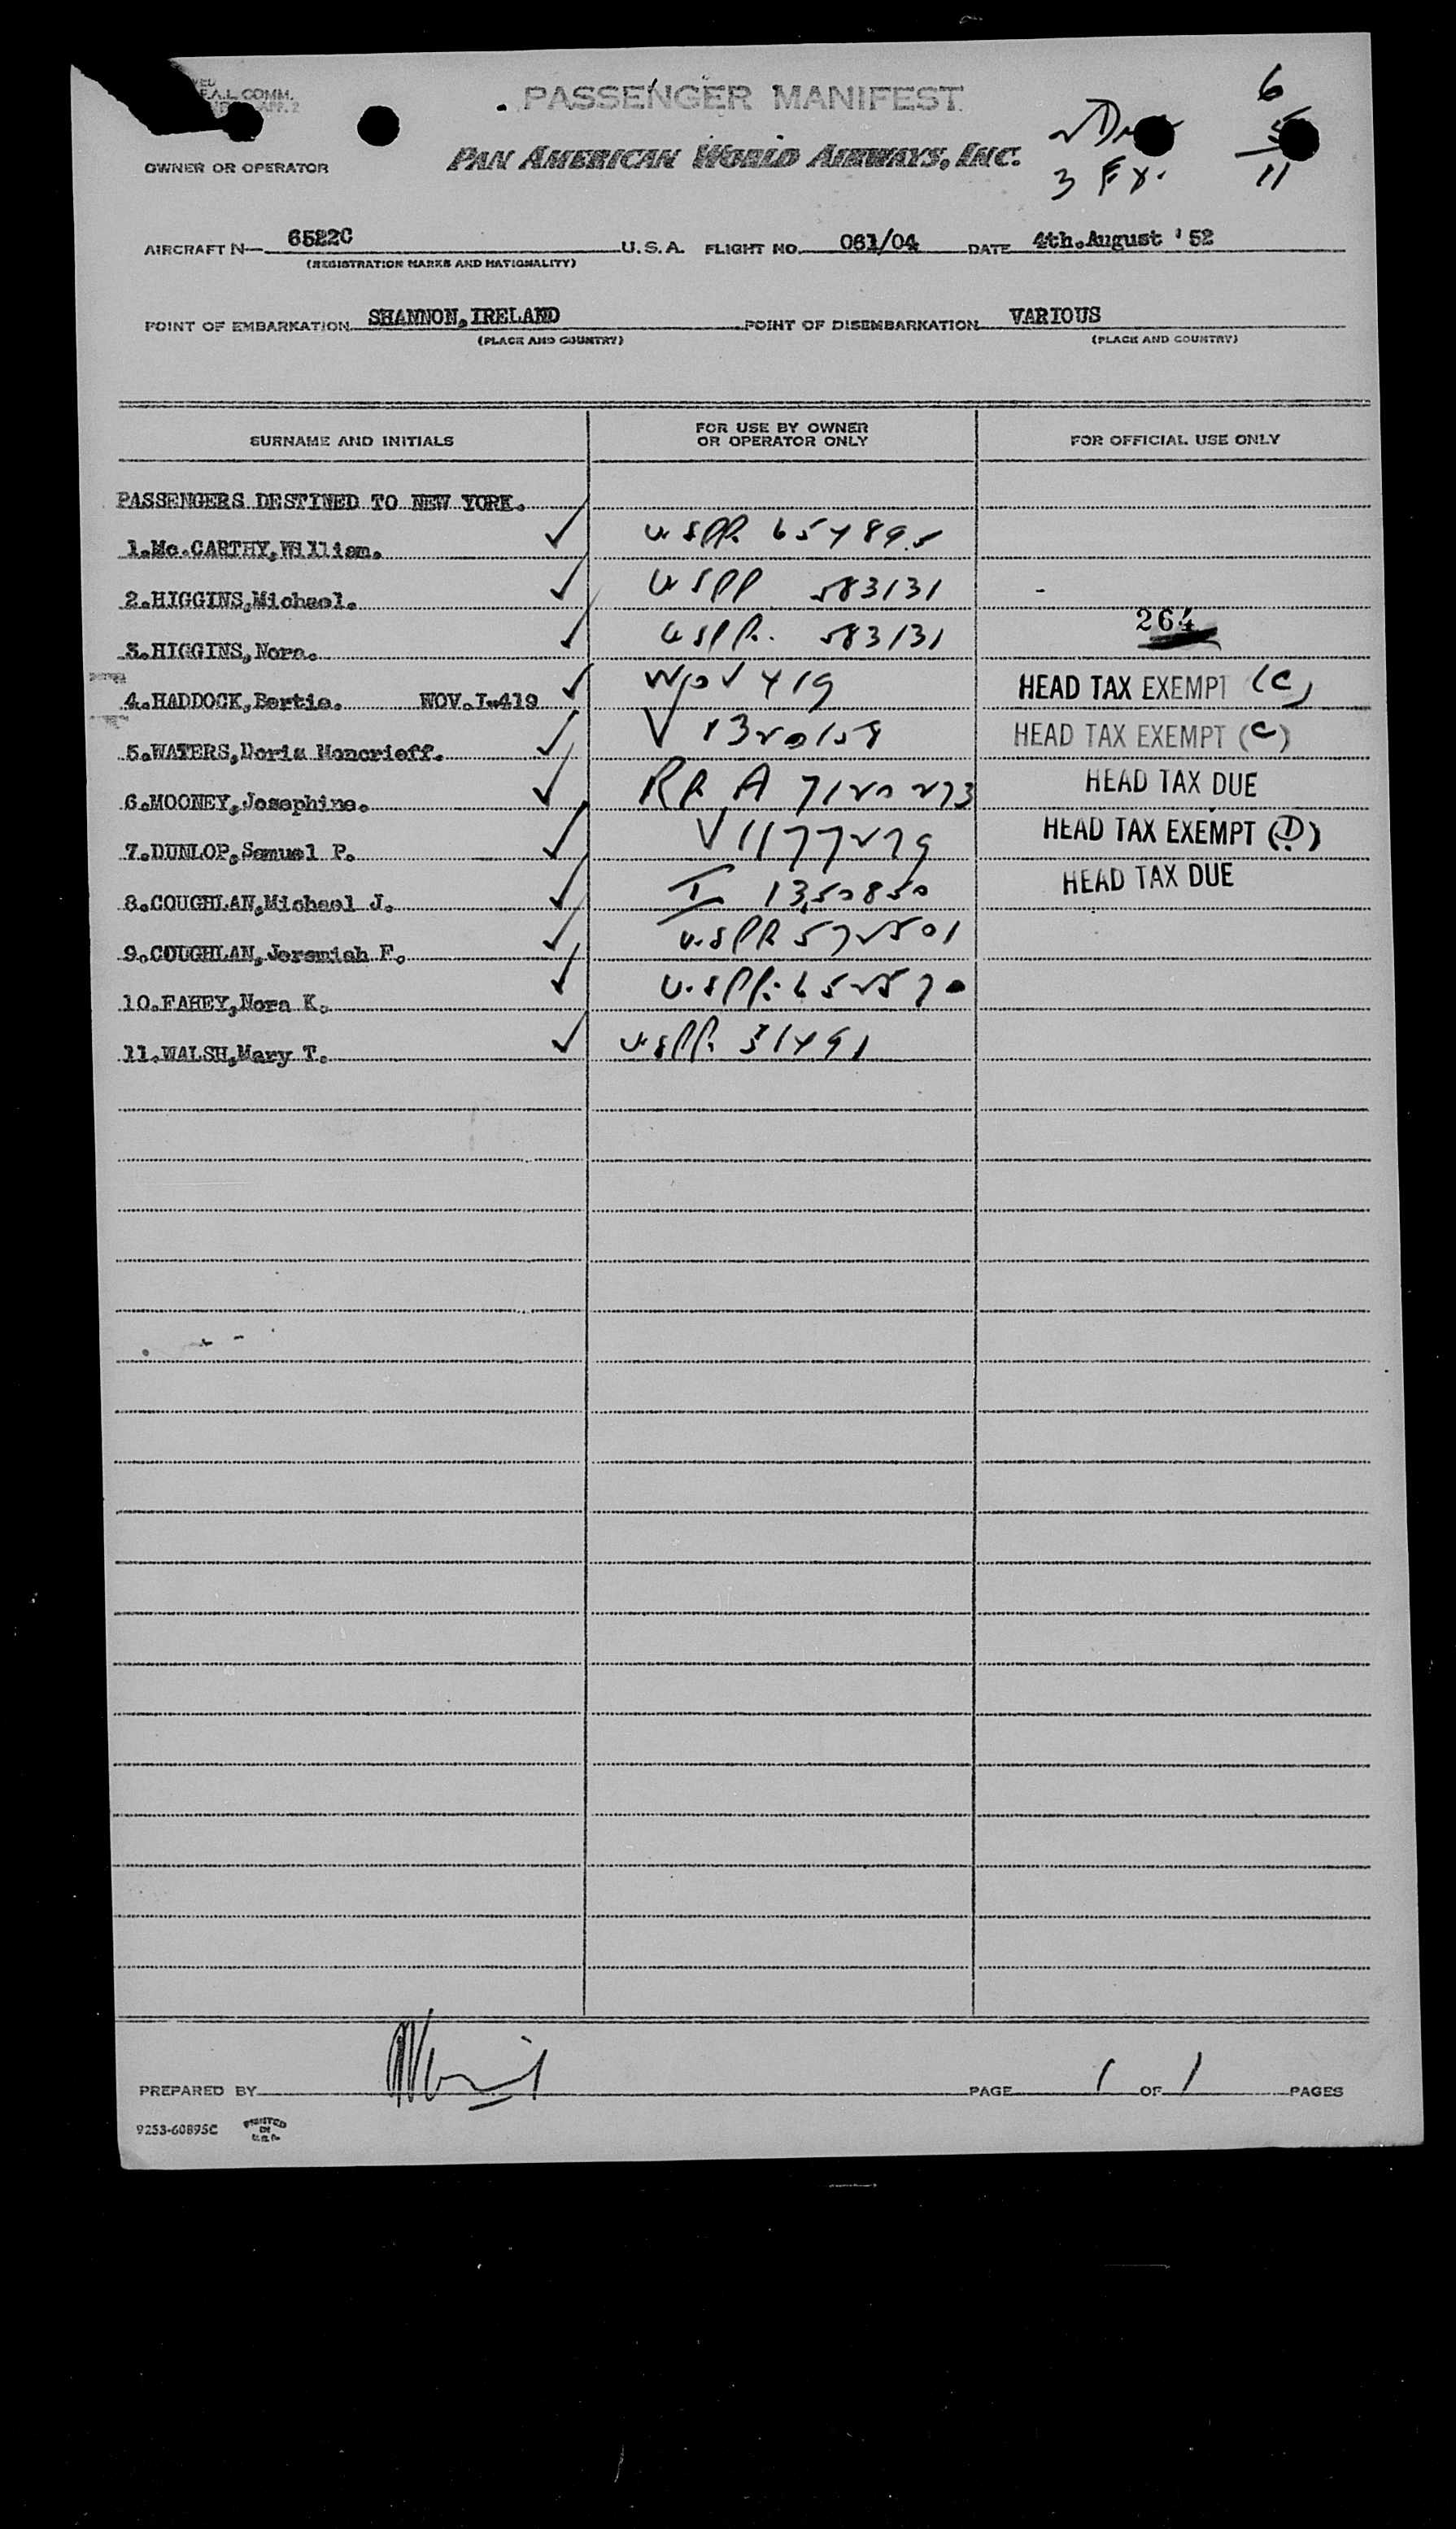 F.A.L. COMM.
PASSENGER MANIFEST
6
5
11
3 Ex.
OWNER OR OPERATOR PAN AMERICAN WORLD AIRWAYS, INC.
AIRCRAFT N— 6522C U.S.A. FLIGHT NO. 061/04 DATE 4th.August '52
(REGISTRATION MARKS AND NATIONALITY)
POINT OF EMBARKATION SHANNON,IRELAND POINT OF DISEMBARKATION VARIOUS
(PLACE AND COUNTRY) (PLACE AND COUNTRY)
SURNAME AND INITIALS FOR USE BY OWNER OR OPERATOR ONLY FOR OFFICIAL USE ONLY
PASSENGERS DESTINED TO NEW YORK.
1.Mc.CARTHY,William. ✓ U.S.P.P. 654895
2.HIGGINS,Michael. ✓ USPP 583131
3.HIGGINS,Nora. ✓ USPP. 583131 264
4.HADDOCK,Bertie. NOV.I-419 ✓ NOV 419 HEAD TAX EXEMPT (C)
5.WATERS,Doris Moncrieff. ✓ V 1320158 HEAD TAX EXEMPT (C)
6.MOONEY,Josephine. ✓ HEAD TAX DUE
7.DUNLOP,Samuel P. ✓ V 1177279 HEAD TAX EXEMPT (D)
8.COUGHLAN,Michael J. ✓ I 1350850 HEAD TAX DUE
9.COUGHLAN,Jeremiah F. ✓ U.S.P.P. 572501
10.FAHEY,Nora K. ✓ U.S.P.P. 652570
11.WALSH,Mary T. ✓ U.S.P.P. 31491
PREPARED BY PAGE 1 OF 1 PAGES
9253-60895C PRINTED IN U.S.A.